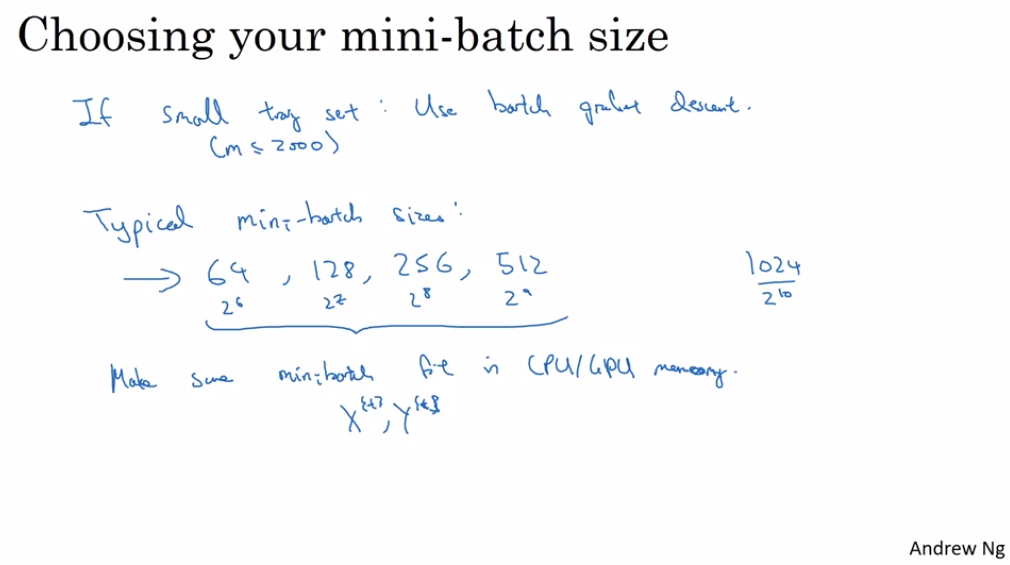 Choosing your mini-batch size
If small trag set : Use batch gradient descent.
(m ≤ 2000)
Typical mini-batch sizes:
→ 64 , 128, 256, 512 1024
2^6 2^7 2^8 2^9 2^10
Make sure mini-batch fit in CPU/GPU memory.
X^{t}, Y^{t}
Andrew Ng